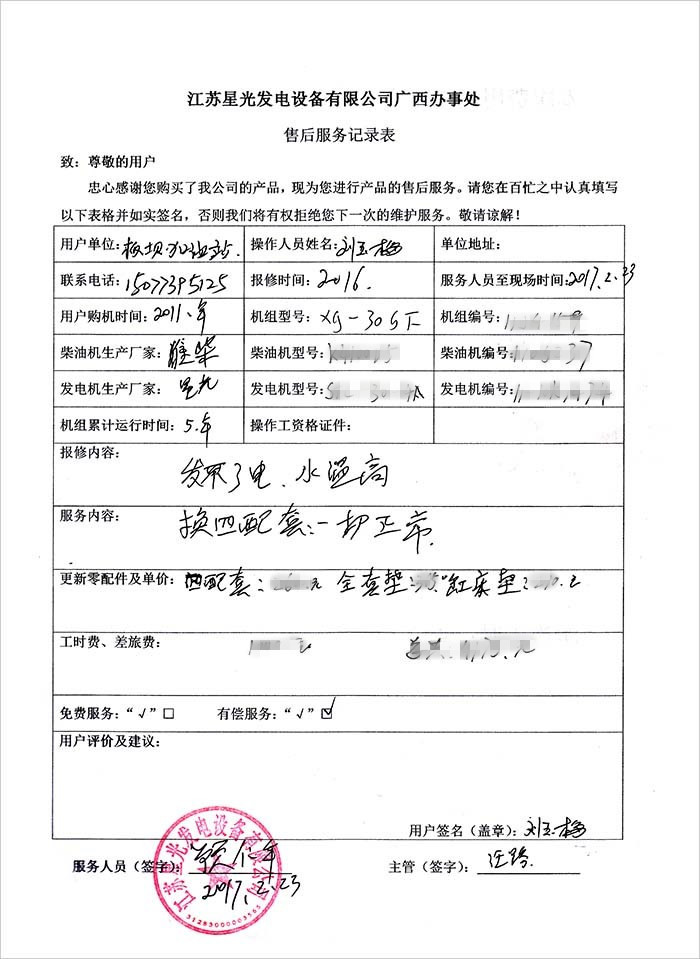 江苏星光发电设备有限公司广西办事处
售后服务记录表
致：尊敬的用户
忠心感谢您购买了我公司的产品，现为您进行产品的售后服务。请您在百忙之中认真填写
以下表格并如实签名，否则我们将有权拒绝您下一次的维护服务。敬请谅解！
用户单位：板坝加油站 操作人员姓名：刘玉梅 单位地址：
联系电话：15077395125 报修时间：2016. 服务人员至现场时间：2017.2.23
用户购机时间：2011.年 机组型号：XG-30GF 机组编号：
柴油机生产厂家：潍柴 柴油机型号： 柴油机编号：
发电机生产厂家：星光 发电机型号： 发电机编号：
机组累计运行时间：5.年 操作工资格证件：
报修内容：
发不了电、水温高
服务内容：
换四配套：一切正常.
更新零配件及单价：四配套： 元 全套垫： 缸床垫：
工时费、差旅费：
免费服务：“√”□ 有偿服务：“√”☑
用户评价及建议：
用户签名（盖章）：刘玉梅
服务人员（签字）： 主管（签字）：
2017.2.23
江苏星光发电设备有限公司